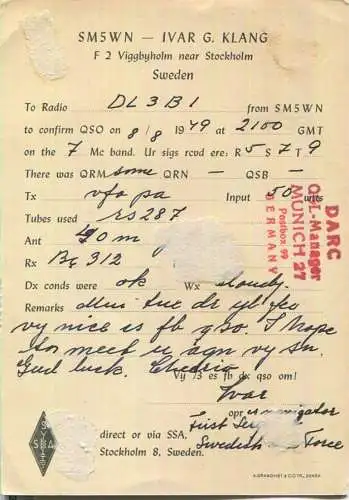 SM5WN — IVAR G. KLANG
F 2 Viggbyholm near Stockholm
Sweden
To Radio DL3BI from SM5WN
to confirm QSO on 8/8 1949 at 2100 GMT
on the 7 Mc band. Ur sigs rcvd ere: R 5 S 7 T 9
There was QRM some QRN — QSB —
Tx vfo pa Input 50 wtts
Tubes used rs287
Ant 40 m
Rx Bc 312
Dx conds were ok Wx cloudy.
Remarks dr
vy nice es fb qso. I hope
to meet u agn vy sn.
Gud luck. Cheerio
Vy 73 es fb dx qso om!
Ivar
opr es navigator
First
Swedish Force
direct or via SSA,
Stockholm 8, Sweden.
SSA
DARC
QSL-Manager
MUNICH 27
Postbox 99
GERMANY